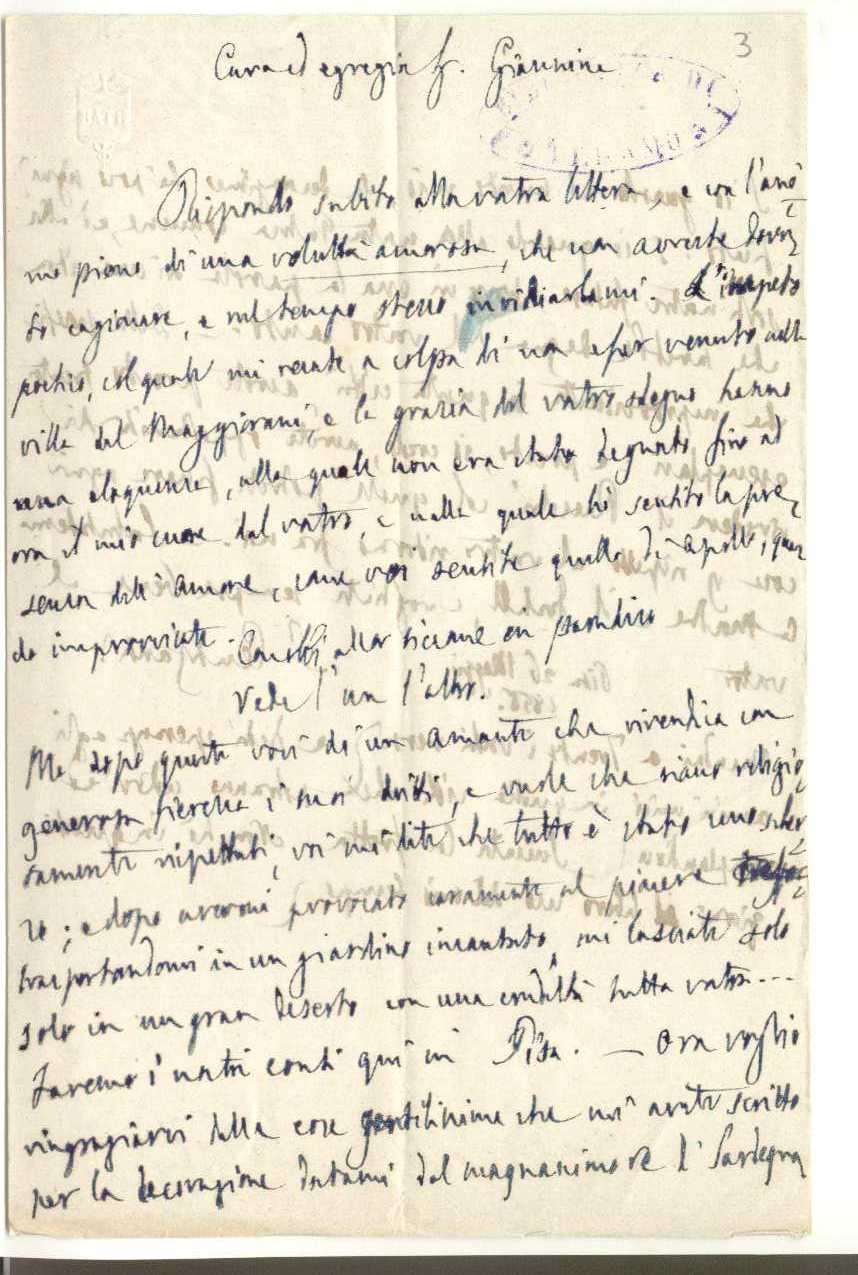 3
Cara ed egregia Sig. Giannina
Rispondo subito alla vostra lettera, e con l'ani
mo pieno di una voluttà amorosa, che non avreste dovu
to cagionare, e nel tempo stesso invidiarlami. L'impeto
poetico, col quale mi recate a colpa di non esser venuto nella
villa del Maggiorani, e la grazia del vostro sdegno hanno
una eloquenza, alla quale non era stato degnato fino ad
ora il mio cuore dal vostro, e nella quale hò sentito la pre
senza dell'amore, come voi sentite quella di Apollo, quan
do improvvisate.
Conobbi allor siccome in paradiso
Vede l'un l'altro.
Ma dopo queste voci di un amante che rivendica con
generosa fierezza i suoi diritti, e vuole che siano religio
samente rispettati, voi mi dite che tutto è stato uno scher
zo; e dopo avermi provocato caramente al piacere
trasportandomi in un giardino incantato, mi lasciate solo
solo in un gran deserto con una crudeltà tutta vostra...
Faremo i nostri conti quì in Pisa. — Ora voglio
ringraziarvi delle cose gentilissime che mi avete scritto
per la decorazione datami dal magnanimo re di Sardegna